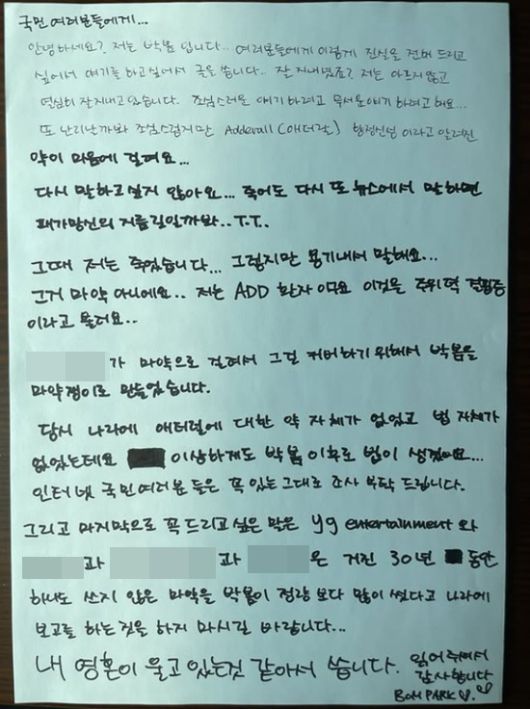 국민 여러분들에게...
안녕하세요? 저는 박봄 입니다.. 여러분들에게 이렇게 진실을 전해 드리고
싶어서 얘기를 하고싶어서 글을 씁니다.. 잘 지내셨죠? 저는 아프지 않고
열심히 잘지내고 있습니다. 조심스러운 얘기 하려고 무서운얘기 하려고 해요...
또 난리난까봐 조심스럽지만 Adderall (애더럴) 향정신성 이라고 알려진
약이 마음에 걸려요...
다시 말하고 싶지 않아요... 죽어도 다시 또 뉴스에서 말하면
패가망신의 지름길일까봐..T.T..
그때 저는 죽었습니다... 그렇지만 용기내서 말해요...
그거 마약 아니에요.. 저는 ADD 환자 이구요 이것을 주위력 결핍증
이라고 불러요..
가 마약으로 걸려서 그걸 커버하기 위해서 박봄을
마약쟁이로 만들었습니다.
당시 나라에 애터럴에 대한 약 자체가 없었고 법 자체가
없었는데요 이상하게도 박봄 이후로 법이 생겼어요...
인터넷 국민여러분 들은 꼭 있는그대로 조사 부탁 드립니다.
그리고 마지막으로 꼭 드리고 싶은 말은 yg entertainment 와
과 과 은 거진 30년 동안
하나도 쓰지 않은 마약을 박봄이 정량 보다 많이 썼다고 나라에
보고를 하는 것을 하지 마시길 바랍니다...
내 영혼이 울고 있는것 같아서 씁니다. 읽어 주셔서
감사합니다
BOM PARK♡.♡